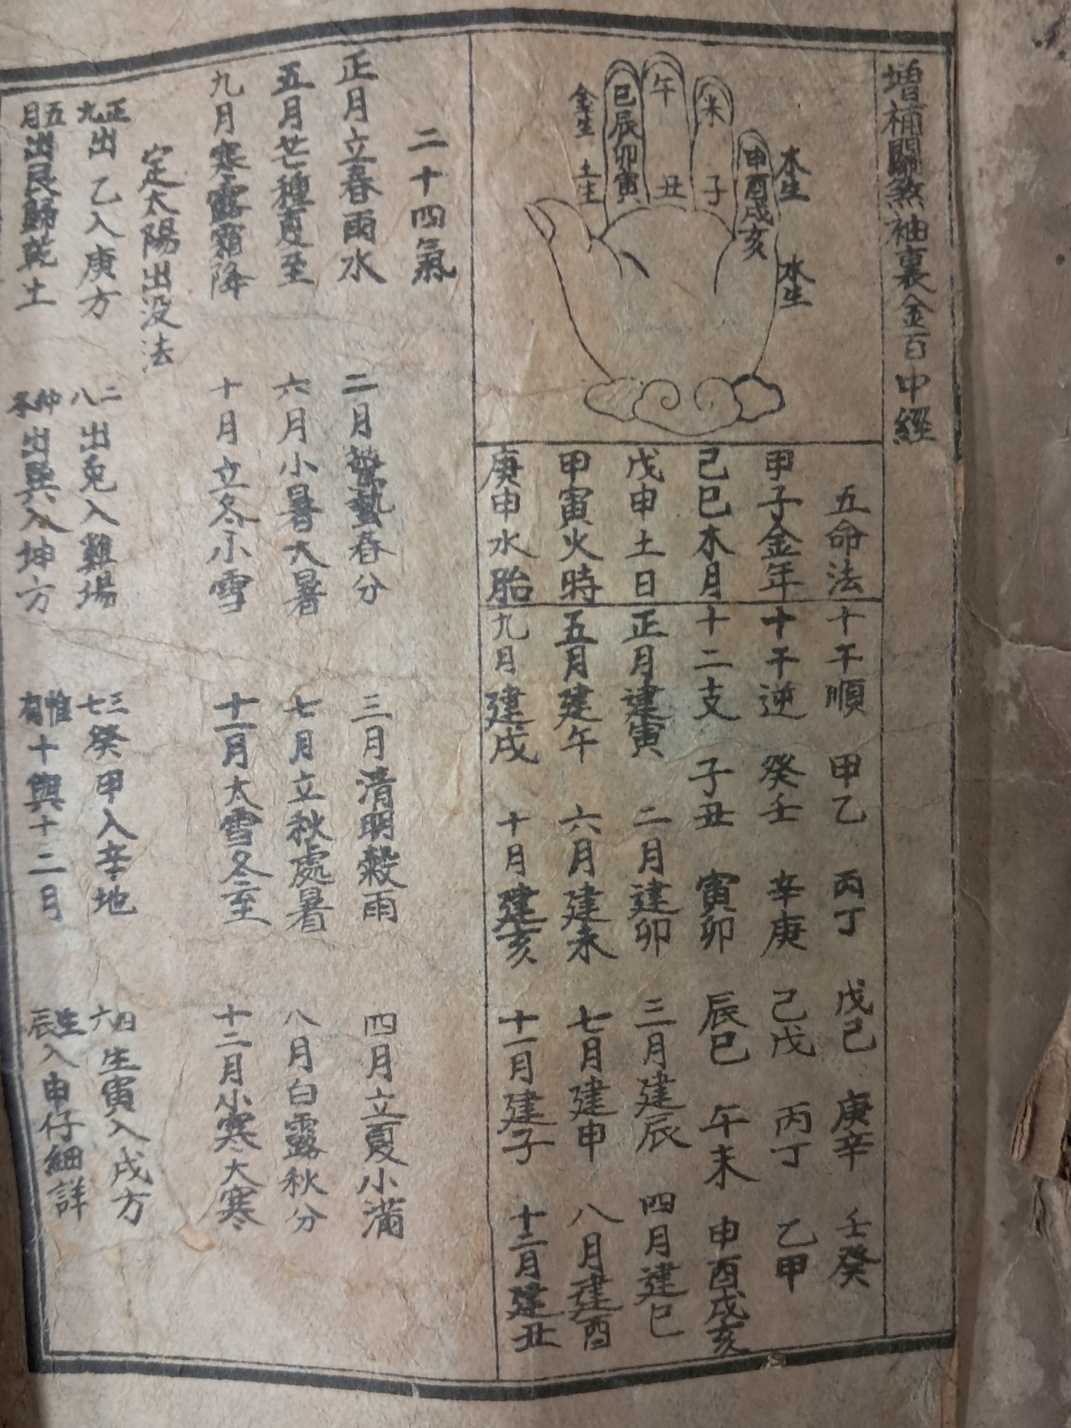 增補關煞袖裏金百中經
木生
水生
金生
土生
午
未
巳辰卯寅
丑
子
申酉戌亥
五命法
甲子金年
己巳木月
戊申土日
甲寅火時
庚申水胎
十干順 甲乙 丙丁 戊己 庚辛 壬癸
十干逆 癸壬 辛庚 己戊 丙丁 乙甲
十二支 子丑 寅卯 辰巳 午未 申酉戌亥
正月建寅 二月建卯 三月建辰 四月建巳
五月建午 六月建未 七月建申 八月建酉
九月建戌 十月建亥 十一月建子 十二月建丑
二十四氣
正月立春雨水 二月驚蟄春分 三月清明穀雨 四月立夏小滿
五月芒種夏至 六月小暑大暑 七月立秋處暑 八月白露秋分
九月寒露霜降 十月立冬小雪 十一月大雪冬至 十二月小寒大寒
定太陽出没法
正九出乙入庚方 二八出兎入雞場 三七癸甲入辛地 四六生寅入戌方
五月出艮歸乾土 仲冬出巽入坤方 惟有十與十二月 生辰入申仔細詳